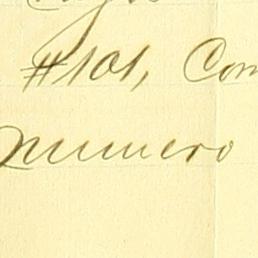 #101, Com
numero